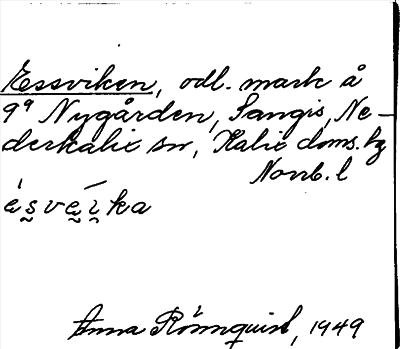 Essviken, odl. mark å
9⁹ Nygården, Sangis, Ne-
derkalix sn, Kalix doms. hg
Norrb. l
Anna Rönnquist, 1949